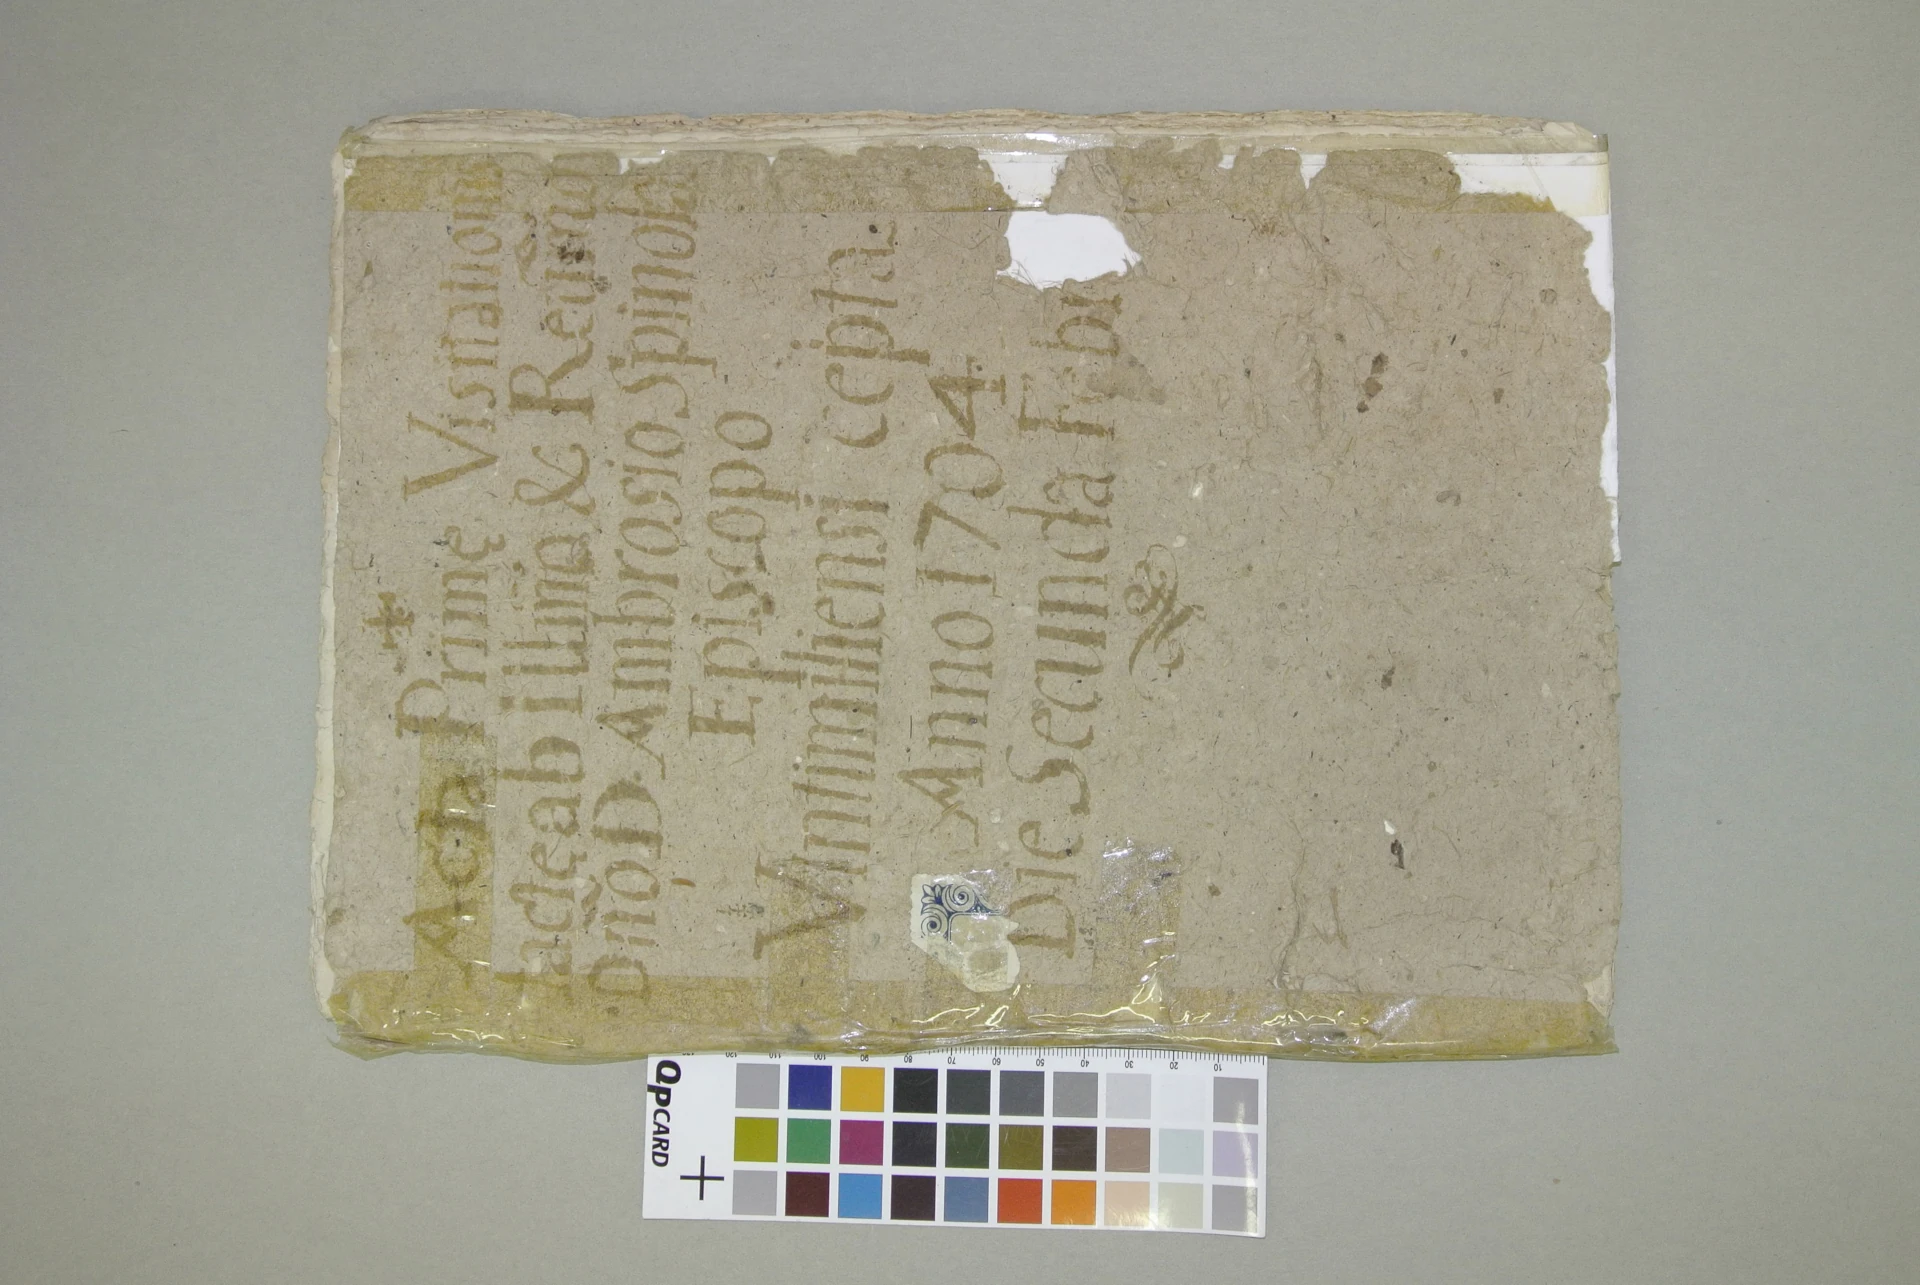 ✝
Acta Primę Visitationis
factę ab Illm̃o & Reu͂m̃o
Dn͂o D. Ambrosio Spinola
Episcopo
Vintimilliensi cepta
Anno 1704
Die Secunda Febr
QPCARD
120 110 100 90 80 70 60 50 40 30 20 10